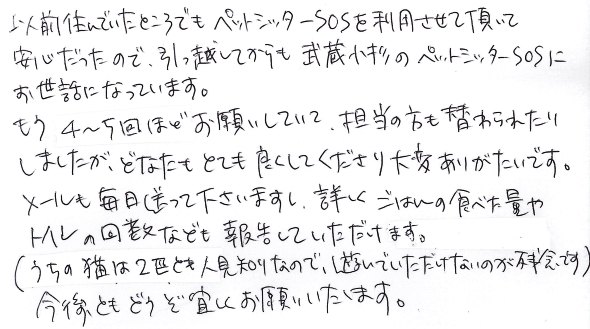 以前住んでいたところでもペットシッターSOSを利用させて頂いて
安心だったので、引っ越してからも武蔵小杉のペットシッターSOSに
お世話になっています。
もう4〜5回ほどお願いしていて、担当の方も替わられたり
しましたが、どなたもとても良くしてくださり大変ありがたいです。
メールも毎日送って下さいますし、詳しくごはんの食べた量や
トイレの回数なども報告していただけます。
(うちの猫は2匹とも人見知りなので、遊んでいただけないのが残念です)
今後ともどうぞ宜しくお願いいたします。